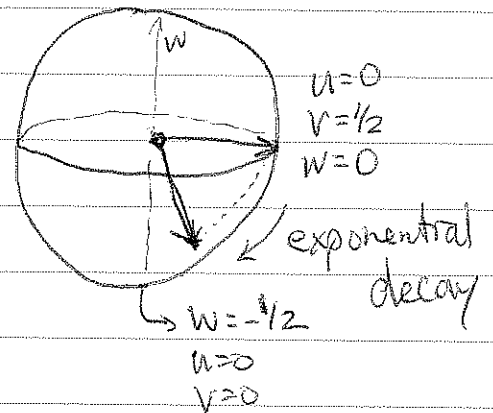 w
u=0
v=1/2
w=0
exponential
decay
w=-1/2
u=0
v=0